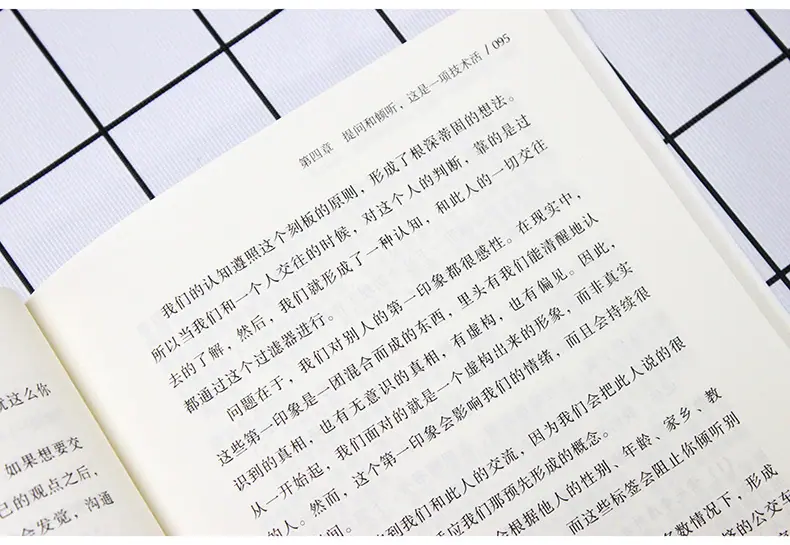 就这么你
如果想要交
己的观点之后,
会发觉,沟通
第四章 提问和倾听,这是一项技术活 / 095
我们的认知遵照这个刻板的原则,形成了根深蒂固的想法。
所以当我们和一个人交往的时候,对这个人的判断,靠的是过
去的了解,然后,我们就形成了一种认知,和此人的一切交往
都通过这个过滤器进行。
问题在于,我们对别人的第一印象都很感性。在现实中,
这些第一印象是一团混合而成的东西,里头有我们能清醒地认
识到的真相,也有无意识的真相,有虚构,也有偏见。因此,
从一开始起,我们面对的就是一个虚构出来的形象,而非真实
的人。然而,这个第一印象会影响我们的情绪,而且会持续很
间。
到我们和此人的交流,因为我们会把此人说的很
应我们那预先形成的概念。
会根据他人的性别、年龄、家乡、教
而这些标签会阻止你倾听别
数情况下,形成
的公交车